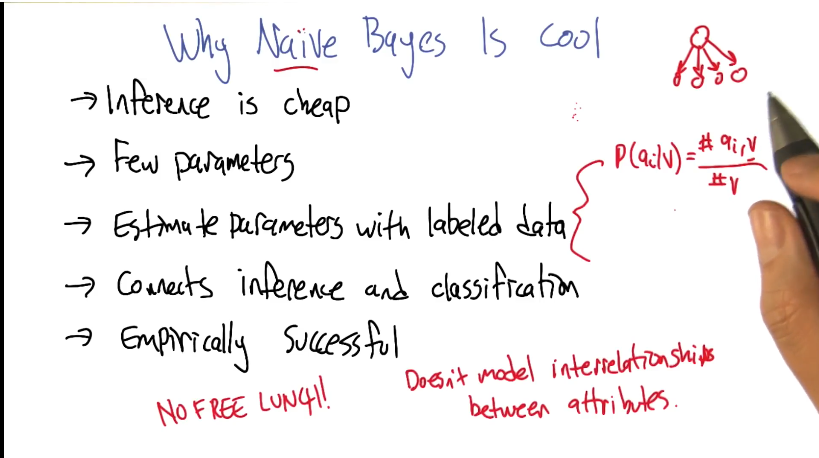 Why Naïve Bayes Is cool
→ Inference is cheap
→ Few parameters
→ Estimate parameters with labeled data
P(ai|v) = # ai, v / # v
→ Connects inference and classification
→ Empirically Successful
NO FREE LUNCH!
Doesn't model interrelationships
between attributes.